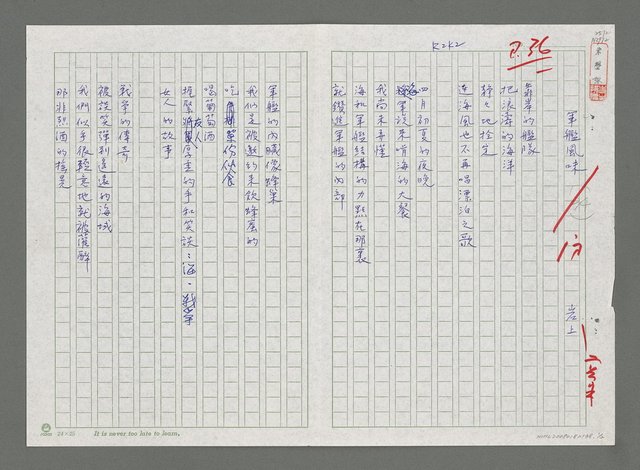 R2K2
P.36
軍艦風味
岩上
靠岸的艦隊
把浪濤的海洋
輕々地拴定
連海風也不再唱漂泊之歌
四月初夏的夜晚
海軍說來嚐海的大餐
我尚未弄懂
海和軍艦結構的力點在那裏
就鑽進軍艦的內部
軍艦的內臟像蜂巢
我們是被邀約來飲蜂蜜的
吃
份伙食
喝葡萄酒
握緊友人厚重的手和笑談：海、戰爭
女人的故事
戰爭的傳奇
被談笑彈到遙遠的海域
我們似乎很輕意地就被灌醉
那非烈酒的艙是
24×25
It is never too late to learn.